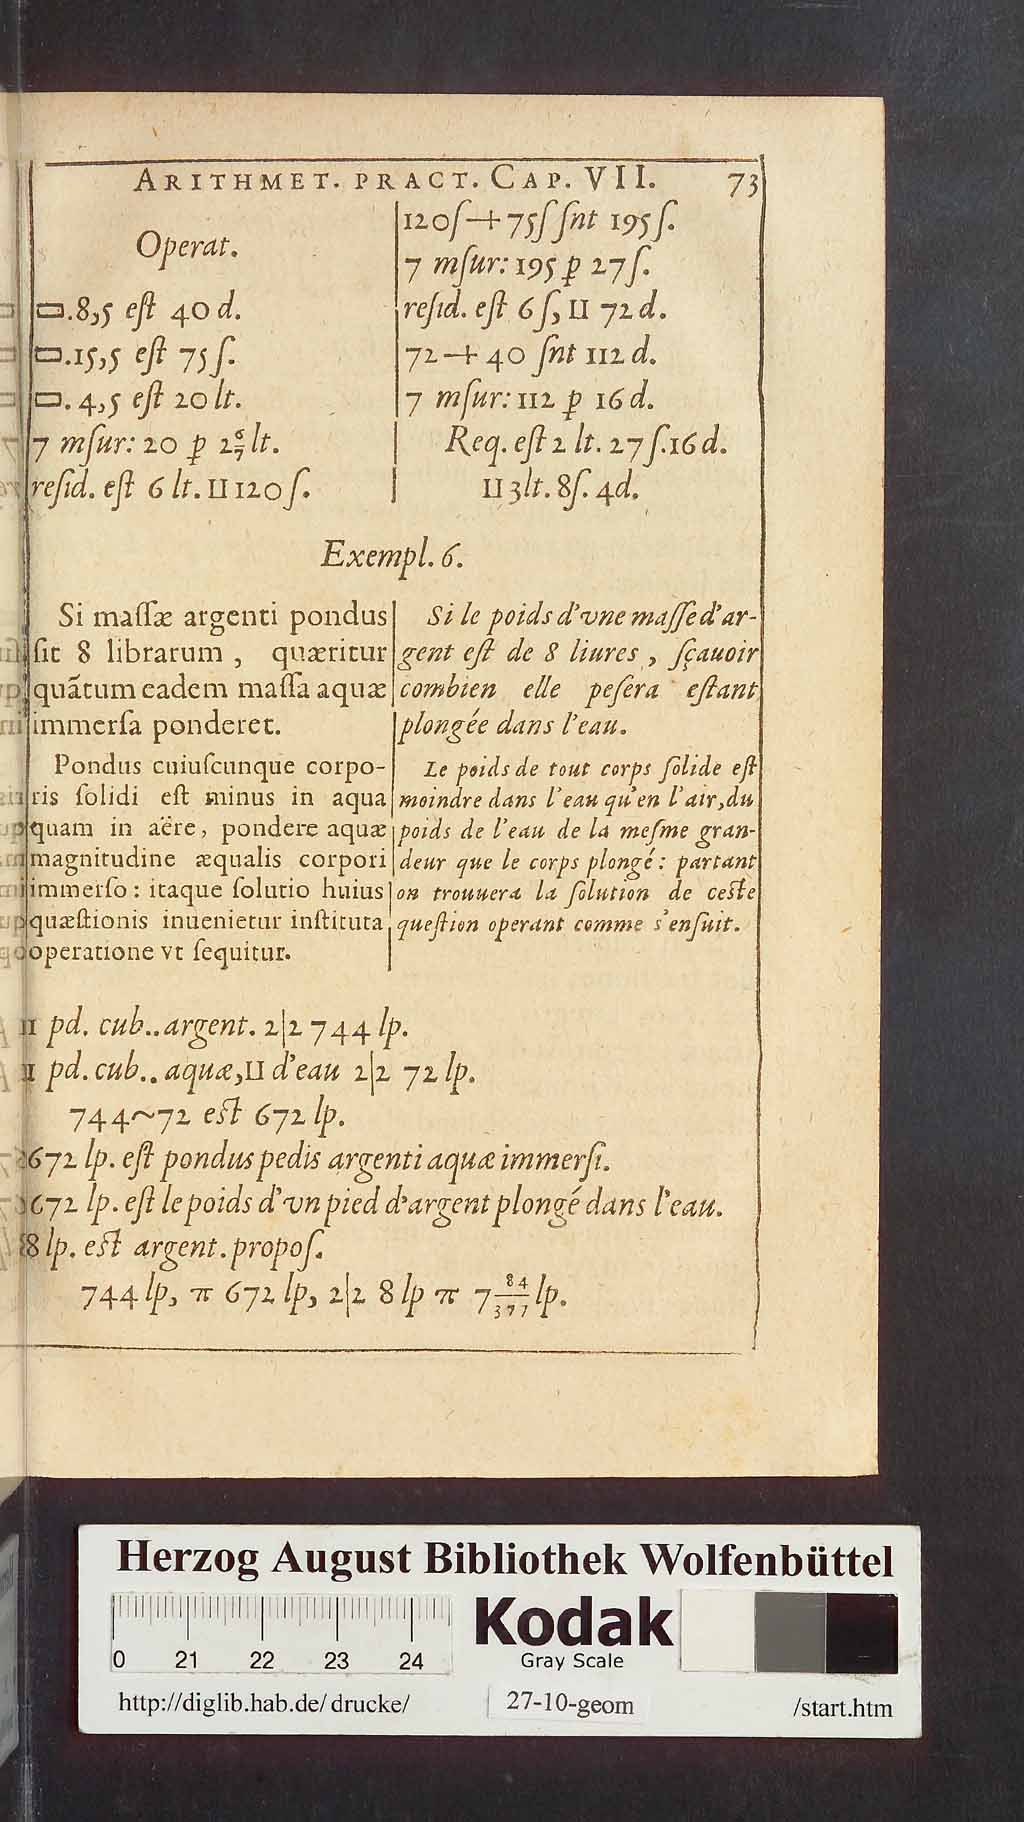 ARITHMET. PRACT. CAP. VII. 73
Operat.
▭.8,5 eſt 40 d.
▭.15,5 eſt 75 ſ.
▭. 4,5 eſt 20 lt.
7 mſur: 20 ꝑ 2 6/7 lt.
reſid. eſt 6 lt. II 120 ſ.
120ſ + 75ſ ſnt 195 ſ.
7 mſur: 195 ꝑ 27 ſ.
reſid. eſt 6 ſ, II 72 d.
72 + 40 ſnt 112 d.
7 mſur: 112 ꝑ 16 d.
Req. eſt 2 lt. 27 ſ. 16 d.
II 3 lt. 8 ſ. 4 d.
Exempl. 6.
Si maſſæ argenti pondus
ſit 8 librarum , quæritur
quãtum eadem maſſa aquæ
immerſa ponderet.
Pondus cuiuſcunque corpo-
ris ſolidi eſt minus in aqua
quam in aëre, pondere aquæ
magnitudine æqualis corpori
immerſo : itaque ſolutio huius
quæſtionis inuenietur inſtituta
operatione vt ſequitur.
Si le poids d'vne maſſe d'ar-
gent eſt de 8 liures , ſçauoir
combien elle peſera eſtant
plongée dans l'eau.
Le poids de tout corps ſolide eſt
moindre dans l'eau qu'en l'air, du
poids de l'eau de la meſme gran-
deur que le corps plongé : partant
on trouuera la ſolution de ceſte
queſtion operant comme s'enſuit.
1 pd. cub.. argent. 2|2 744 lp.
1 pd. cub.. aquæ, II d'eau 2|2 72 lp.
744 ~ 72 eſt 672 lp.
672 lp. eſt pondus pedis argenti aquæ immerſi.
672 lp. eſt le poids d'vn pied d'argent plongé dans l'eau.
8 lp. eſt argent. propoſ.
744 lp, π 672 lp, 2|2 8 lp π 7 84/377 lp.
Herzog August Bibliothek Wolfenbüttel
0 21 22 23 24
Kodak
Gray Scale
http://diglib.hab.de/drucke/ 27-10-geom /start.htm